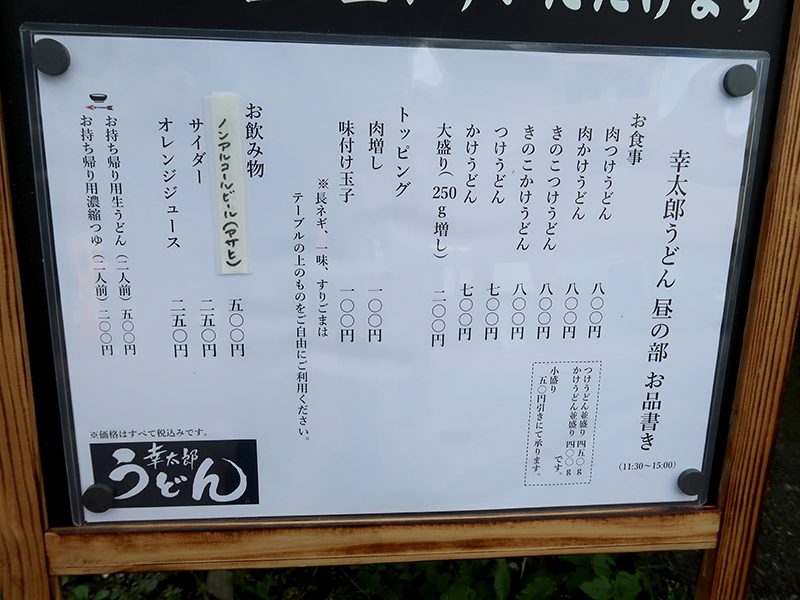 幸太郎うどん 昼の部 お品書き
(11:30〜15:00)
お食事
肉つけうどん 八〇〇円
肉かけうどん 八〇〇円
きのこつけうどん 八〇〇円
きのこかけうどん 八〇〇円
つけうどん 七〇〇円
かけうどん 七〇〇円
大盛り(250g増し) 二〇〇円
つけうどん並盛り 四五〇g
かけうどん並盛り 四〇〇g
です。
小盛り
五〇円引きにて承ります。
トッピング
肉増し 一〇〇円
味付け玉子 一〇〇円
※長ネギ、一味、すりごまは
テーブルの上のものをご自由にご利用ください。
お飲み物
ノンアルコールビール(アサヒ) 五〇〇円
サイダー 二五〇円
オレンジジュース 二五〇円
お持ち帰り用生うどん(二人前) 五〇〇円
お持ち帰り用濃縮つゆ(二人前) 二〇〇円
※価格はすべて税込みです。
幸太郎
うどん